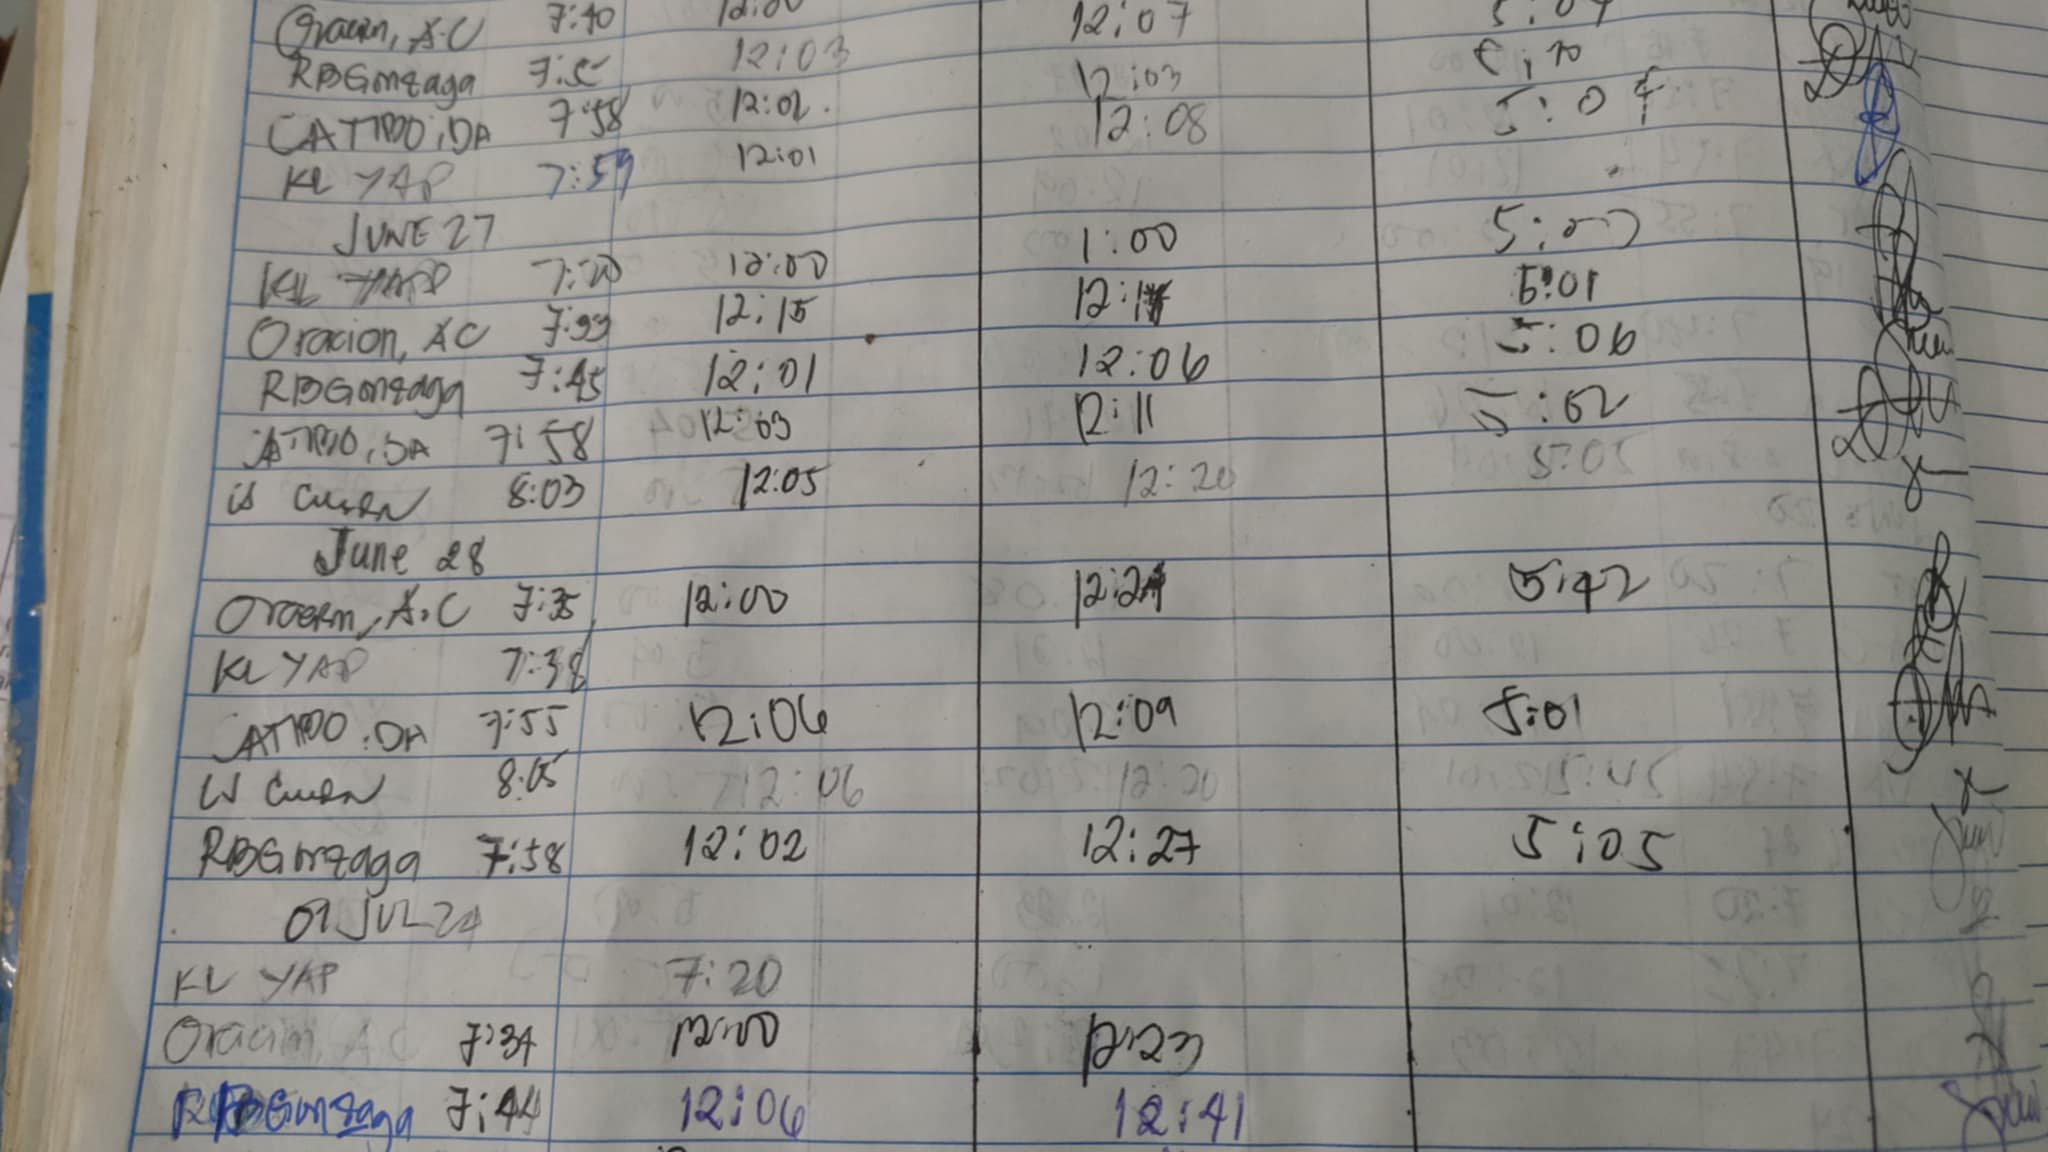 Oracion, A.C 7:40 12:00 12:07
RBGonzaga 7:5 12:03 12:03
CATIPO, DA 7:58 12:02 12:08 5:04
KL YAP 7:59 12:01
JUNE 27
KL YAP 12:00 1:00
Oracion, AC 7:33 12:15 5:01
RBGonzaga 7:45 12:01 12:06 5:06
CATIPO, DA 7:58 12:03 12:11 5:02
8:03 12:05 12:20 5:05
June 28
Oracion, A.C 7:35 12:00 5:42
KL YAP 7:38
CATIPO, DA 7:55 12:06 12:09 5:01
8:05 12:06 12:20
RBGonzaga 7:58 12:02 12:27 5:05
01 JUL 24
KL YAP 7:20
Oracion, A.C 7:34 12:00 12:23
RBGonzaga 7:44 12:06 12:41